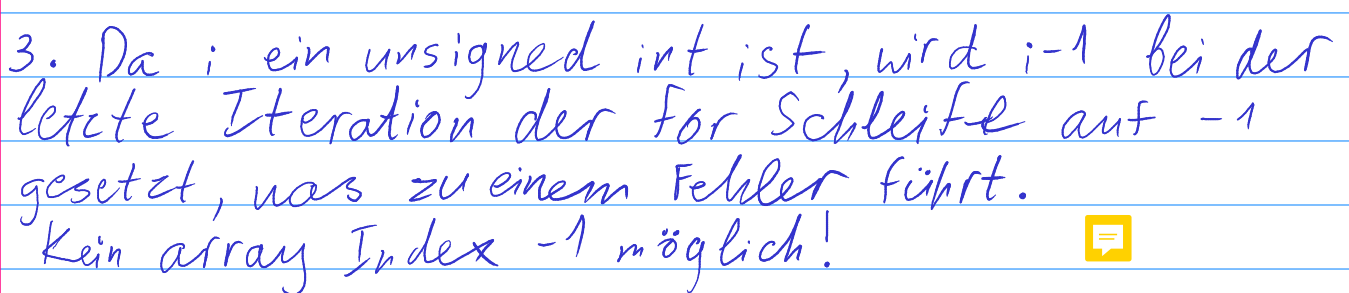 3. Da i ein unsigned int ist, wird i-1 bei der
letzte Iteration der for Schleife auf -1
gesetzt, was zu einem Fehler führt.
Kein array Index -1 möglich!